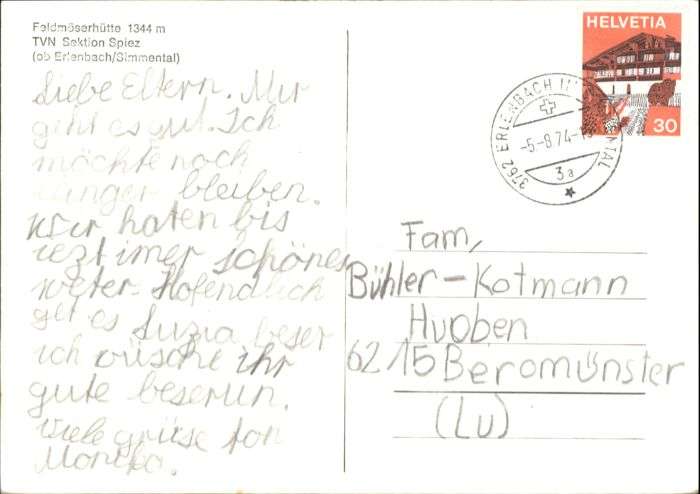 Feldmöserhütte 1344 m
TVN Sektion Spiez
(ob Erlenbach/Simmental)
Liebe Eltern. Mir
geht es gut. Ich
möchte noch
länger bleiben.
Wir haten bis
iezt imer schönes
weter. Hofendlich
get es Luzia beser
ich wüsche ihr
gute beserun.
Viele grüse fon
Monika.
HELVETIA
30
3762 ERLENBACH I
-5-8.74-1
MENTAL
3a
Fam,
Bühler-Kotmann
Huoben
6215 Beromünster
(Lu)